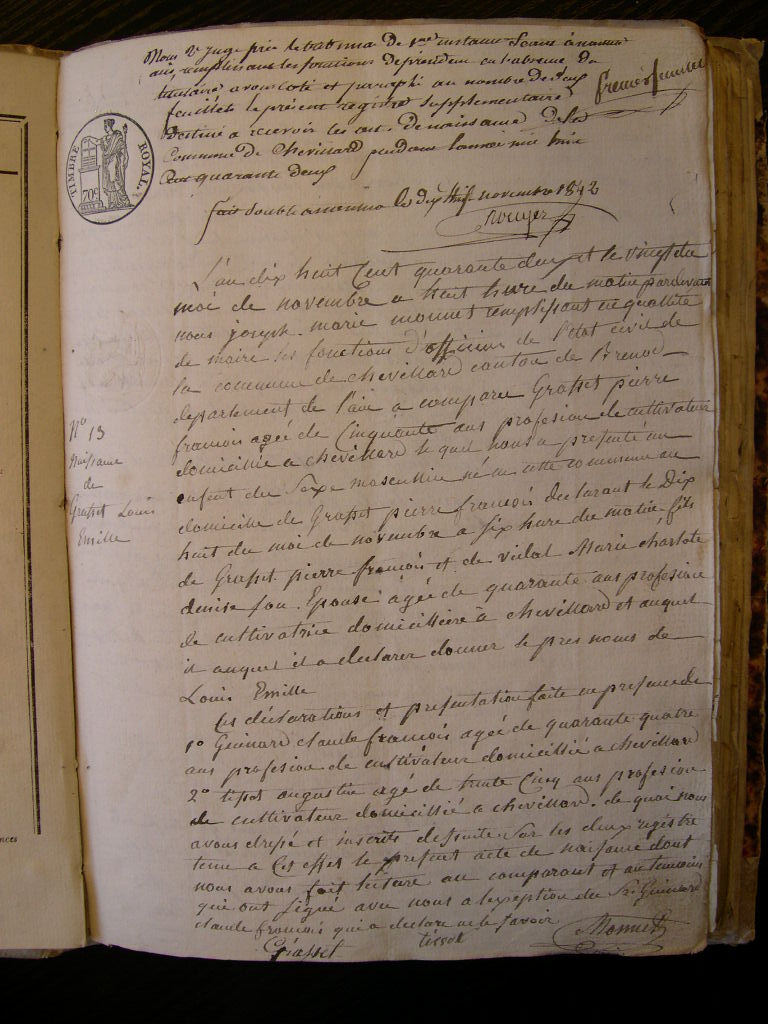 Nous Vs juge près le tribunal de 1ere instance Séant à nantua
remplissant les fonctions de president en l'absence du
titulaire avons coté et paraphé au nombre de deux
feuillets le présent registre supplementaire
destiné a recevoir les actes de naissance de la
Commune de Chevillard pendant l'année mil huit
Cent quarante deux
premier feuillet
fait double a nantua le dix huit novembre 1842
TIMBRE ROYAL
70c
L'an dix huit Cent quarante deux et le vingt du
moi de novembre a huit hure du matin pardevant
nous joseph marie monnet remplissant en qualité
de maire les fonctions d'officier de l'état civil de
la commune de chevillard canton de Brenod
departement de l'ain a comparu Grasset pierre
francois agée de Cinquante ans profesion de cultivateur
domicillié a chevillard le quel nous a presenté un
enfent du Sexe masculin né en cette commune au
domicile de Grasset pierre francois declarant le Dix
huit du moi de novembre a six hure du matin fils
de Grasset pierre francois et de vidal Marie charlote
denise son Epouse agée de quarante ans profesion
de cultivatrice domicilliére à chevillard et auquel
il auquel il a declarer donner le pres noms de
Louis Emille
N° 13
Naissance
de
Grasset Louis
Emille
Ces déclarations et presentation faite en presence de
1° Guinard claude francois agée de quarante quatre
ans profesion de cultivateur domicillié a chevillard
2° tissot augustin agé de trente Cinq ans profesion
de cultivateur domicillié a chevillard. de quoi nous
avons dressé et inscrits de suite sur les deux registre
tenu a Cet effet le present acte de naissance dont
nous avons fait lecture au comparant et au temoins
qui ont signé avec nous a l'exception du Sr. Guinard
claude francois qui a declare ne le savoir
Grasset tissot Monnet